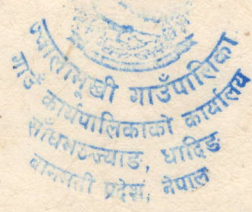 ज्वालामूखी गाउँपालिका
गाउँ कार्यपालिकाको कार्यालय
साँधभञ्ज्याङ, धादिङ
बागमती प्रदेश, नेपाल